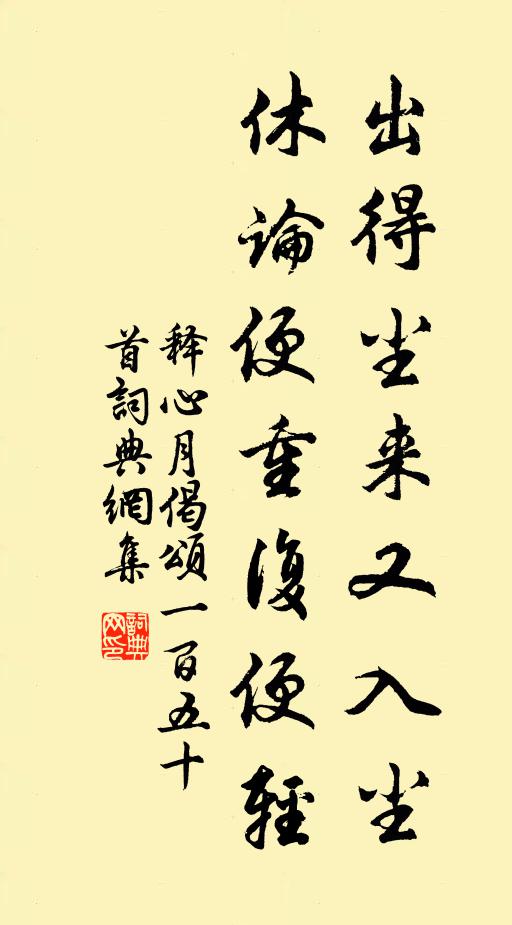 出得尘来又入尘
休論便重復便輕
释心月偈頌一百五十
首詞典網集
詞典
网印